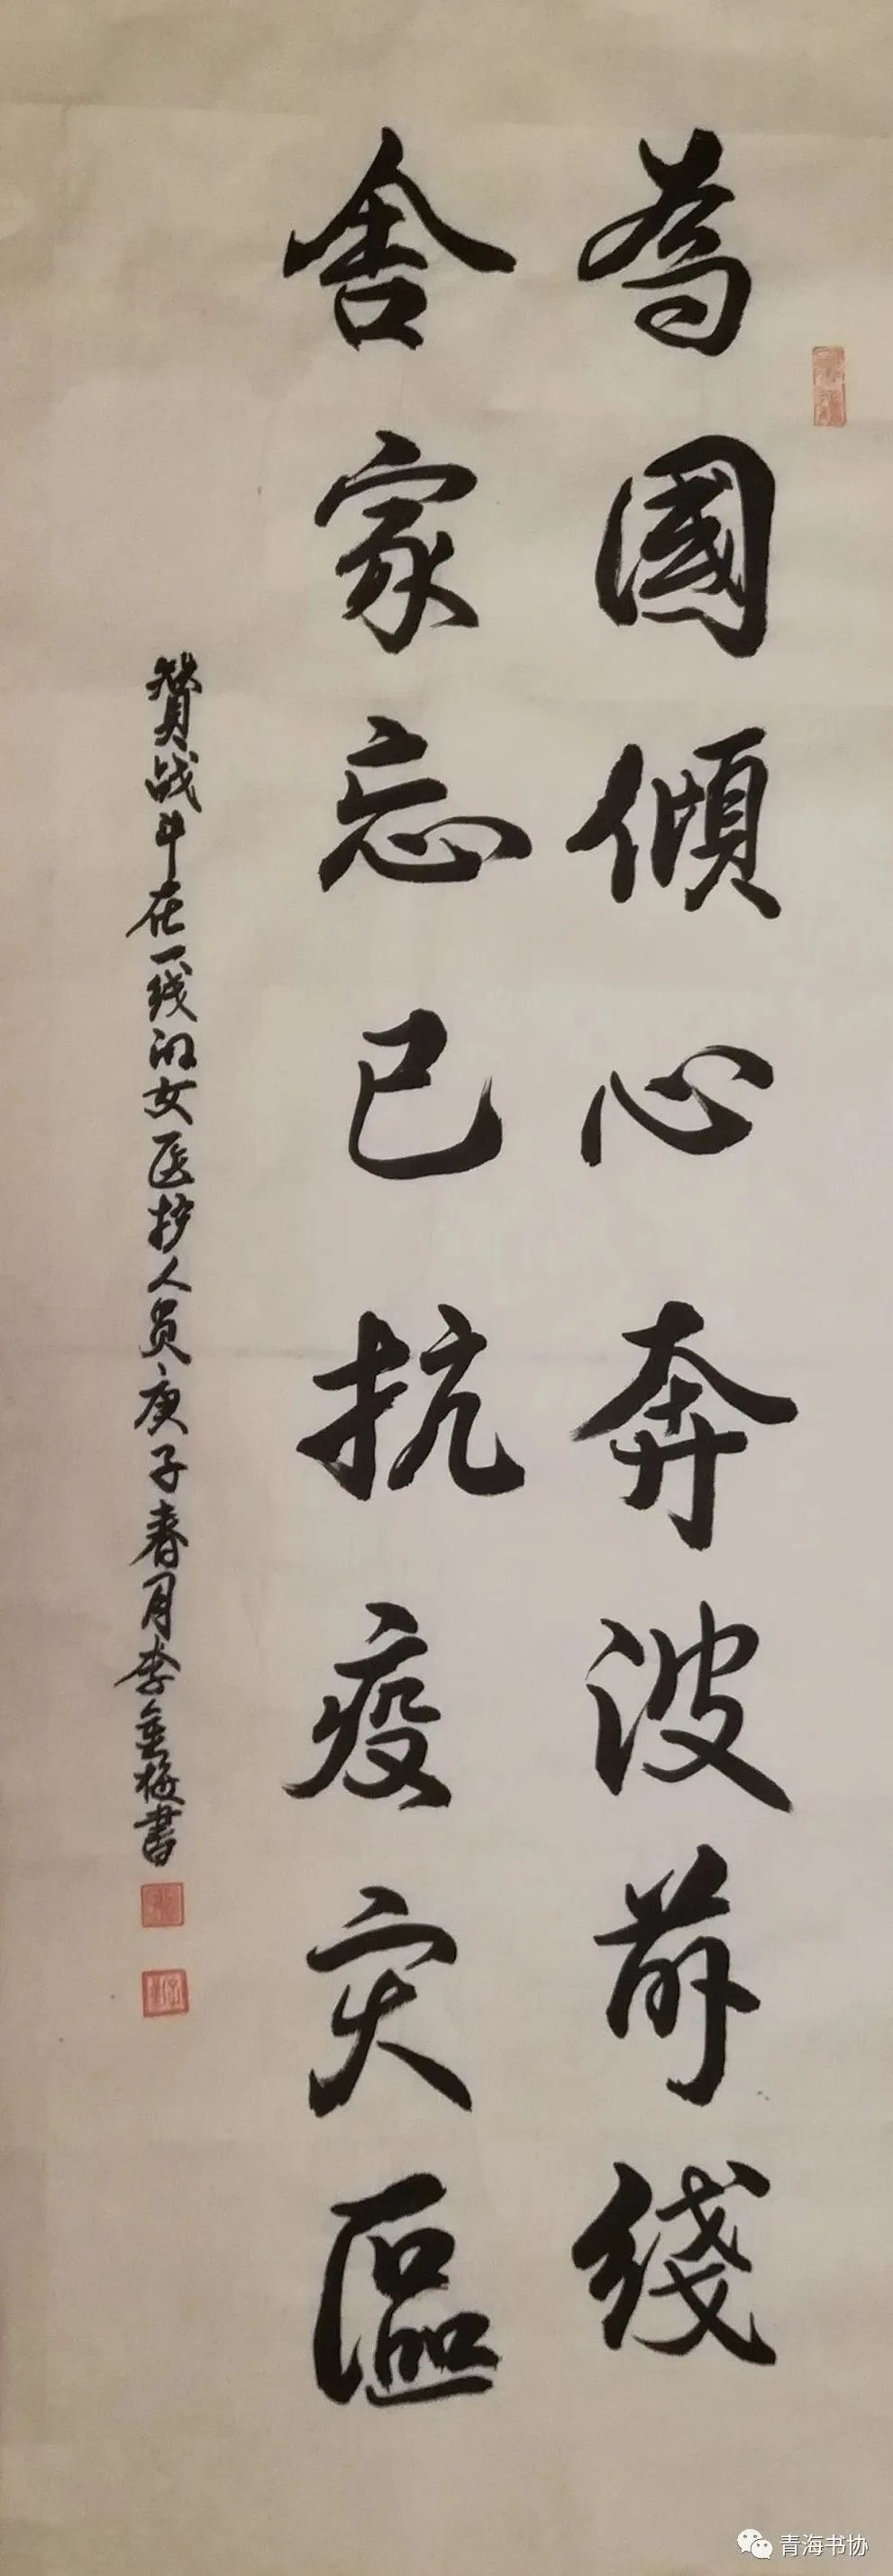 為國傾心奔波前綫
舍家忘己抗疫灾區
贊战斗在一线的女医护人员庚子春月李金梅書
青海书协